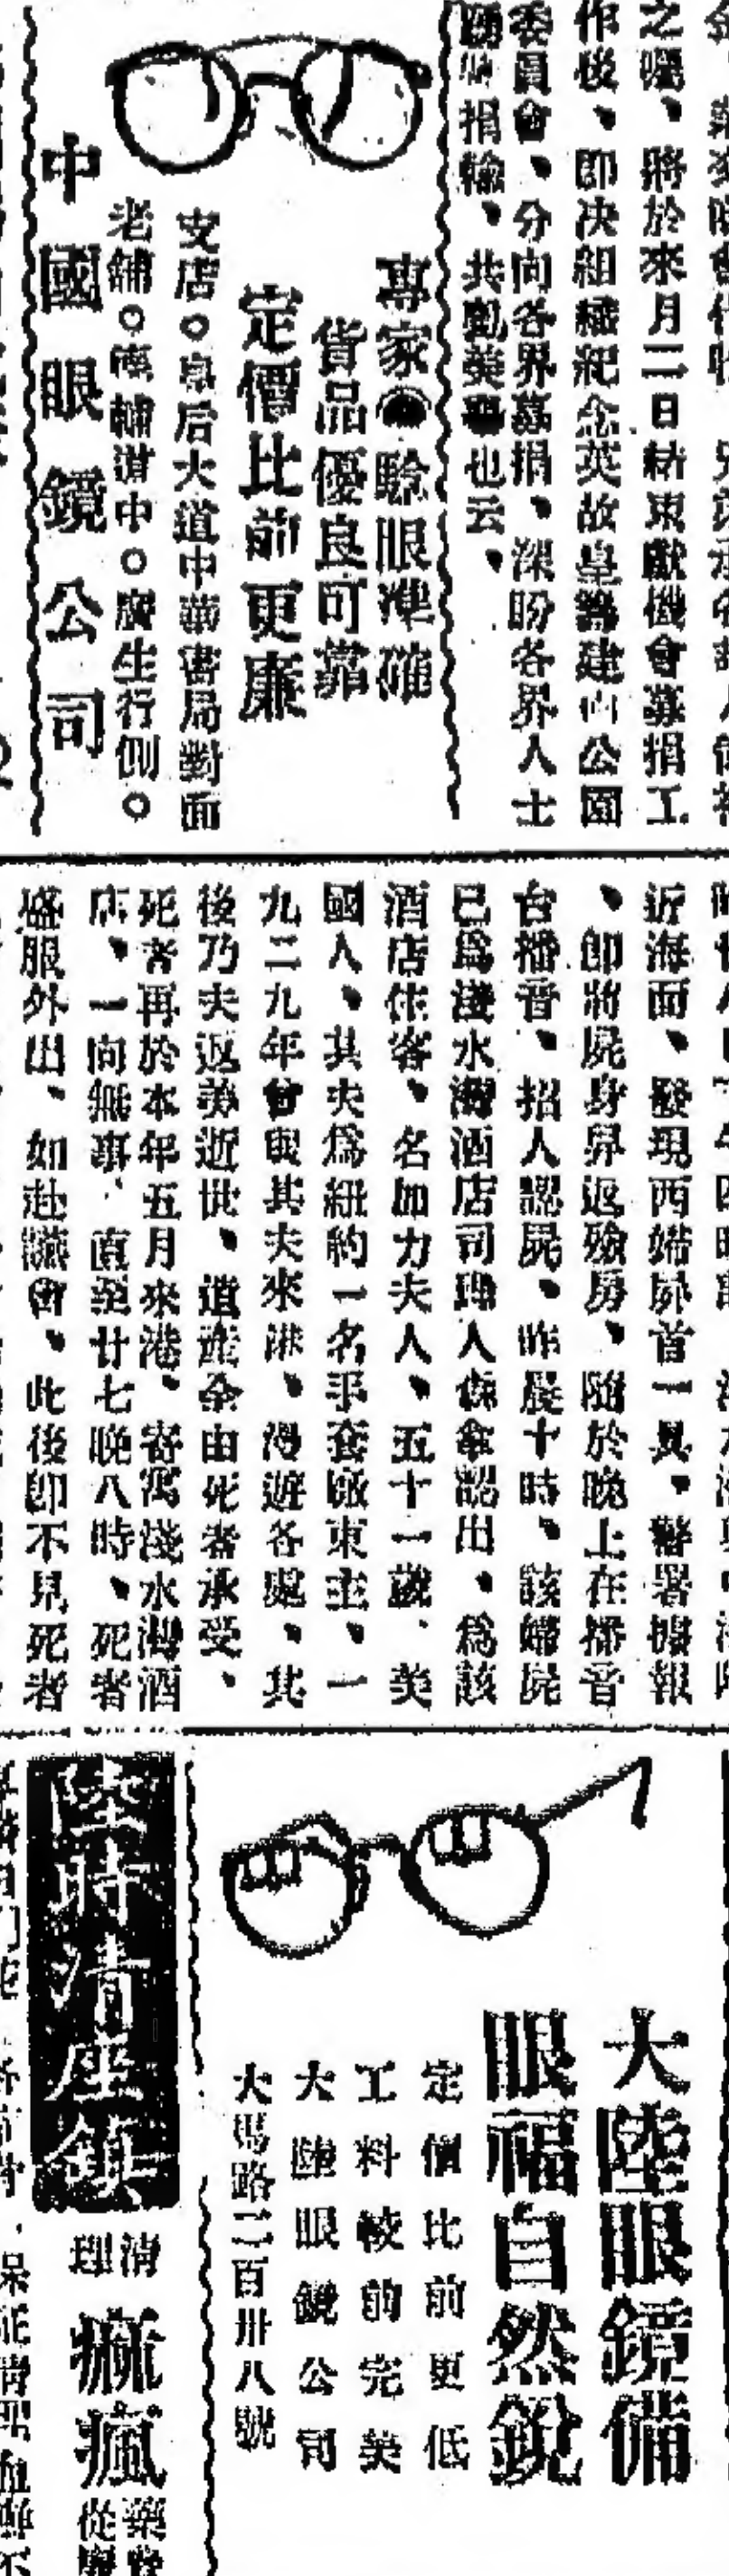 之囑、將於來月二日結束獻機會募捐工
作後、即决組織紀念英故皇籌建公園
委員會、分向各界募捐、深盼各界人士
捐輸、共也云、
專家驗眼準確
貨品優良可靠
定價比前更廉
支店○皇后大道中華書局對面
老舖○德輔道中○廣生行側○
中國眼鏡公司
近海面、發現西婦屍首一具、警署據報
、即將屍身舁返殮房、隨於晚上在播音
台播音、招人認屍、昨晨十時、該婦屍
已爲淺水灣酒店司理人認出、爲該
酒店住客、名加力夫人、五十一歲、美
國人、其夫爲紐約一名手套廠東主、一
九二九年曾與其夫來港、漫遊各處、其
後乃夫返美逝世、遺產全由死者承受、
死者再於本年五月來港、寄寓淺水灣酒
店、一向無事、直至廿七晚八時、死者
盛服外出、如赴讌會、此後卽不見死者
大陸眼鏡備
眼福自然銳
定價比前更低
工料較前完美
大陸眼鏡公司
大馬路二百卅八號
陸時清座鎮
清理
痲瘋